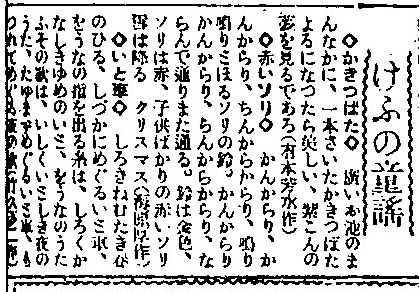 けふの童謡
◇かきつばた◇ 廣いお池のま
んなかに、一本さいたかきつばた
よるになつたら美しい、紫こんの
夢を見るであろ(有本芳水作)
◇赤いソリ◇ かんからり、か
んからり、ちんからからり、鳴り
鳴りくるソリの鈴。かんからり
かんからり、ちんからからり、な
らんで通りまた通る。鈴は金色、
ソリは赤、子供ばかりの赤いソリ
雪は降る クリスマス
◇いと車◇ しろきねむたき春
のひる、しづかにめぐるいと車、
をうなの指を出る糸は、しろくか
なしきゆめのいと、をうなのうた
ふその歌は、いしくいとしき夜の
うた、たゆまずめぐるいと車、